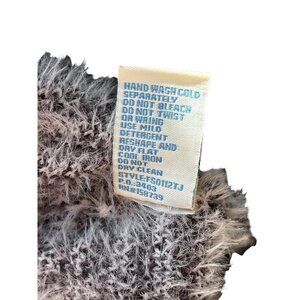 HAND WASH COLD
SEPARATELY
DO NOT BLEACH
DO NOT TWIST
OR WRING
USE MILD
DETERGENT
RESHAPE AND
DRY FLAT
COOL IRON
DO NOT
DRY CLEAN
STYLE:FS0112TJ
P.O.:3403
RN#:158739